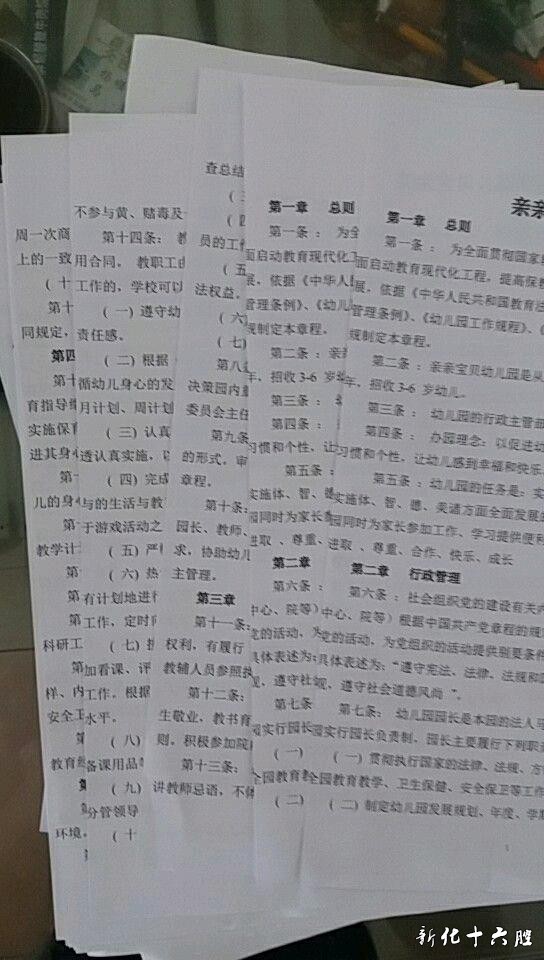 周一次商
上的一致
(十
第十
同规定,
第四
第十
育指导纲
实施保育
进其身心
第十
儿的身心
第
教学计
第
第
科研工
样、内
安全工
第
教育
环境。
不参与黄、赌毒及
第十四条: 教
用合同。教职工由
工作的,学校可以
(一) 遵守幼
责任感。
(二) 根据
循幼儿身心的发
月计划、周计划
(三) 认真
透认真实施,
(四) 完成
与的生活与教
于游戏活动之
(五) 严格
(六) 热
有计划地进行
工作,定时向
(七) 
加看课、评
工作。根据
水平。
(八)
备课用品
(九)
分管领导
(十
查总结
(三
(四
员的工作
(五
法权益。
(六)
(七)
第八条
决策园内重
委员会主任
第九条
的形式,审
章程。
第十条:
园长、教师、
求,协助幼儿
主管理。
第三章
第十一条:
权利,有履行
教辅人员参照执
第十二条:
生敬业,教书育
则。积极参加院
第十三条:
讲教师忌语,不体
第一章 总则
第一条: 为全
面启动教育现代化工
展,依据《中华人民
管理条例》、《幼儿
规制定本章程。
第二条: 亲亲
年,招收3-6
第三条:
第四条:
习惯和个性,让
第五条:
实施体、智、德
园同时为家长参
进取 、尊重、
第二章
第六条:
中心、院等)
党的活动,为
具体表述为:
规,遵守社
第七条
园实行园长
(一)
全园教育教
(二)
亲亲
第一章 总则
第一条: 为全面贯彻国家
面启动教育现代化工程,提高保教
展,依据《中华人民共和国教育法
管理条例》、《幼儿园工作规程》、《
规制定本章程。
第二条: 亲亲宝贝幼儿园是从
年,招收3-6 岁幼儿。
第三条: 幼儿园的行政主管部
第四条: 办园理念:以促进幼
习惯和个性,让幼儿感到幸福和快乐
第五条: 幼儿园的任务是:实
实施体、智、德、美诸方面全面发展的
园同时为家长参加工作、学习提供便利
进取 、尊重、合作、快乐、成长
第二章 行政管理
第六条:社会组织党的建设有关内
中心、院等)根据中国共产党章程的规
党的活动,为党组织的活动提供别要条件
具体表述为:“遵守宪法、法律、法规和国
规,遵守社会道德风尚 ”。
第七条: 幼儿园园长是本园的法人
园实行园长负责制,园长主要履行下列职责
(一) 贯彻执行国家的法律、法规、方
全园教育教学、卫生保健、安全保卫等工作
(二) 制定幼儿园发展规划、年度、学期
新化十六腔